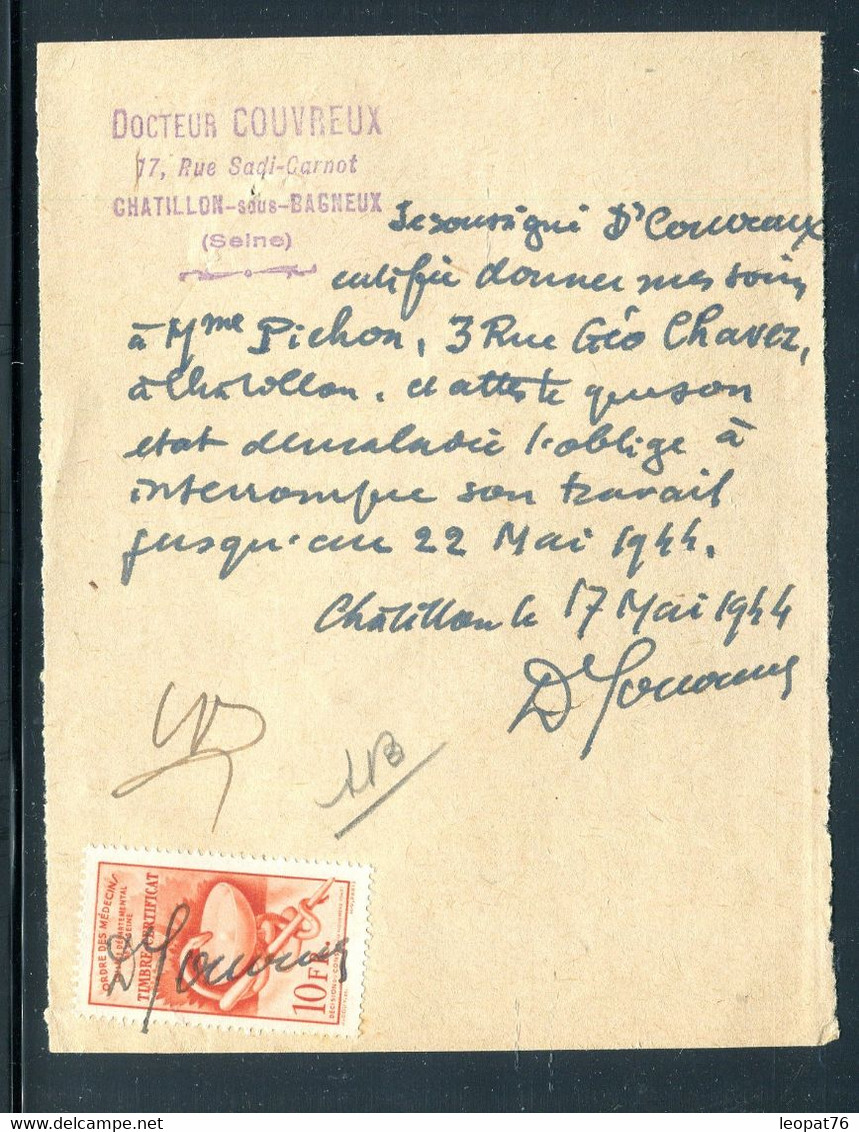 DOCTEUR COUVREUX
17, Rue Sadi-Carnot
CHATILLON-sous-BAGNEUX
(Seine)
Je soussigné Dr Couvreux
certifie donner mes soins
à Mme Pichon, 3 Rue Géo Chavez,
à Châtillon, et atteste que son
etat de maladie l'oblige à
interrompre son travail
jusqu'au 22 Mai 1944.
Châtillon le 17 Mai 1944
Dr Couvreux
ORDRE DES MÉDECINS
DÉPARTEMENTAL
SEINE
TIMBRE CERTIFICAT
10 FR.
Dr Couvreux
leopat76